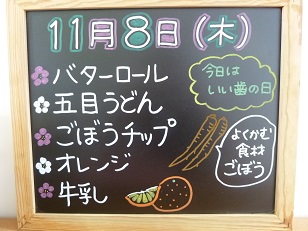 11月8日(木)
バターロール
五目うどん
ごぼうチップ
オレンジ
牛乳
今日は
いい歯の日
よくかむ
食材
ごぼう